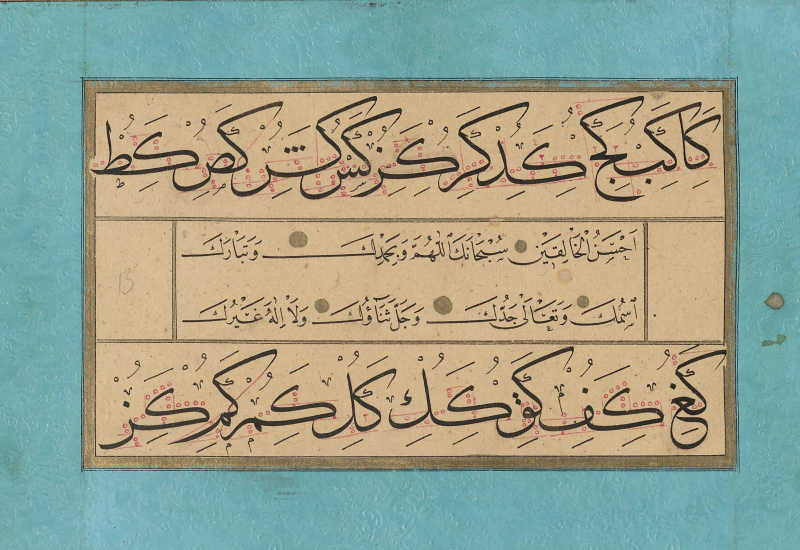 كا كب كج كد كر كز كس كش كص كط
اَحْسَنُ الْخَالِقِينَ سُبْحَانَكَ اللّٰهُمَّ وَبِحَمْدِكَ وَتَبَارَكَ
اسْمُكَ وَتَعَالٰى جَدُّكَ وَجَلَّ ثَنَاؤُكَ وَلَا اِلٰهَ غَيْرُكَ
كع كف كق كك كل كم كم كن